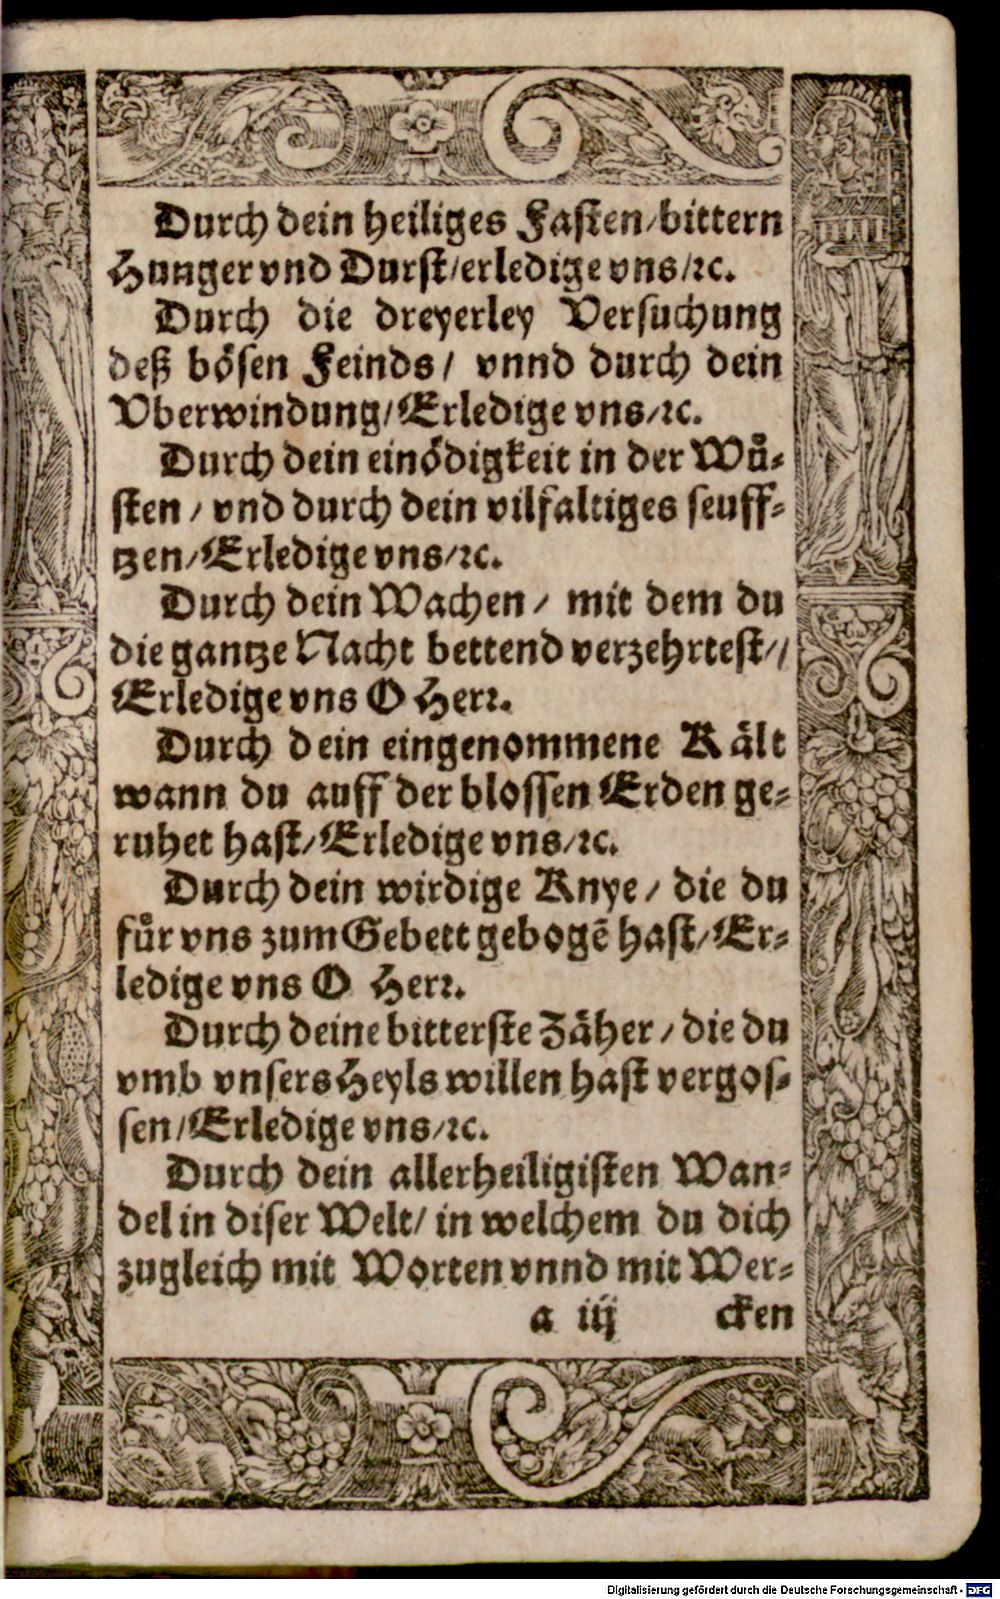 Durch dein heiliges Fasten/bittern
Hunger vnd Durst/erledige vns/ꝛc.
Durch die dreyerley Versuchung
deß bösen Feinds/ vnnd durch dein
Vberwindung/Erledige vns/ꝛc.
Durch dein einödigkeit in der Wuͤ-
sten / vnd durch dein vilfaltiges seuff-
tzen/Erledige vns/ꝛc.
Durch dein Wachen / mit dem du
die gantze Nacht bettend verzehrtest//
Erledige vns O Herꝛ.
Durch dein eingenommene Kält
wann du auff der blossen Erden ge-
ruhet hast/Erledige vns/ꝛc.
Durch dein wirdige Knye / die du
fuͤr vns zum Gebett gebogē hast/Er-
ledige vns O Herꝛ.
Durch deine bitterste Zäher / die du
vmb vnsers Heyls willen hast vergos-
sen/Erledige vns/ꝛc.
Durch dein allerheiligisten Wan-
del in diser Welt/ in welchem du dich
zugleich mit Worten vnnd mit Wer-
a iij cken
Digitalisierung gefördert durch die Deutsche Forschungsgemeinschaft - DFG